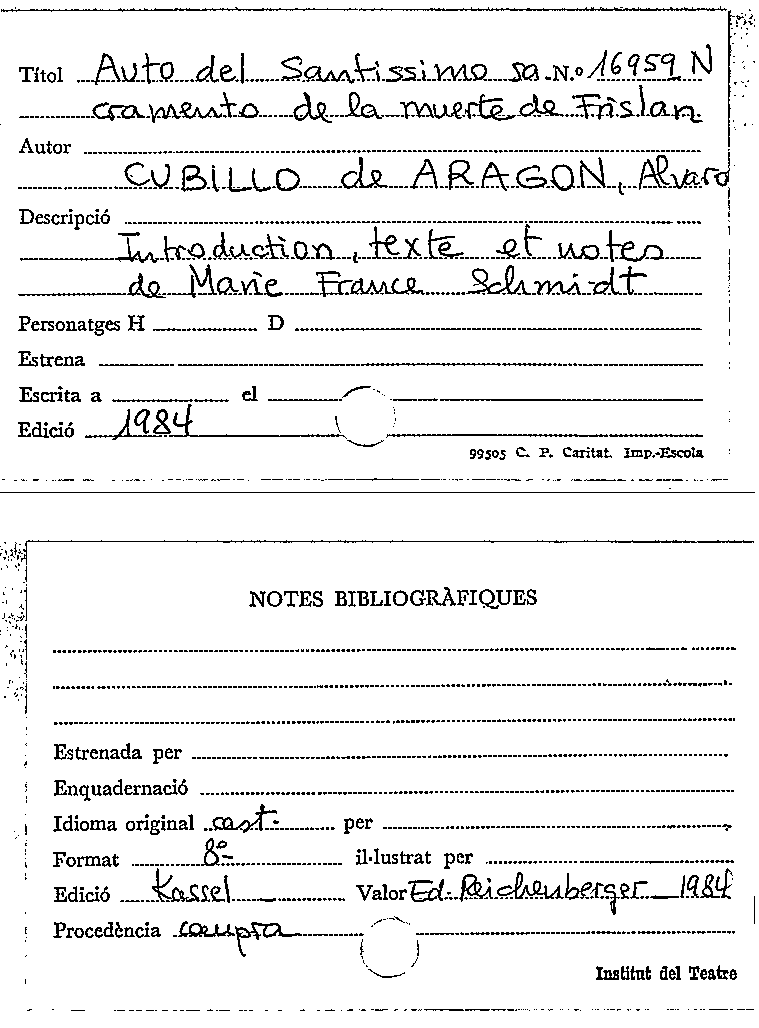 Títol Auto del Santissimo sa N.º 16959 N
cramento de la muerte de Frislan
Autor
CUBILLO de ARAGON, Alvaro
Descripció
Introduction, texte et notes
de Marie France Schmidt
Personatges H D
Estrena
Escrita a el
Edició 1984
99505 C. P. Caritat. Imp.-Escola
NOTES BIBLIOGRÀFIQUES
Estrenada per
Enquadernació
Idioma original cast. per
Format 8º il·lustrat per
Edició Kassel Valor Ed. Reichenberger 1984
Procedència compra
Institut del Teatre